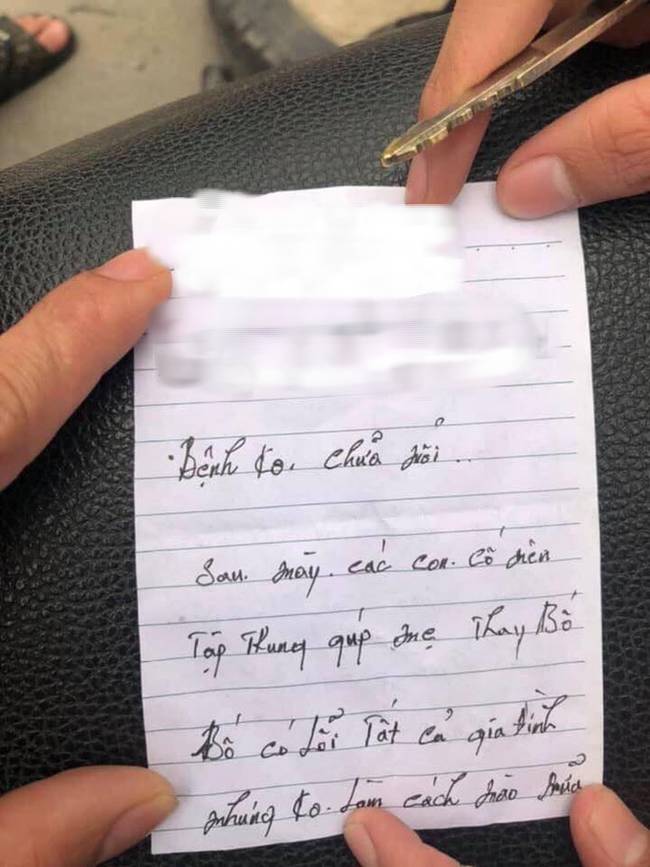 Bệnh ko. chữa nổi..
Sau. này. các con. cố nên
Tập Trung giúp mẹ Thay Bố
Bố có Lỗi Tất cả gia đình
nhưng ko. Làm cách nào nữa